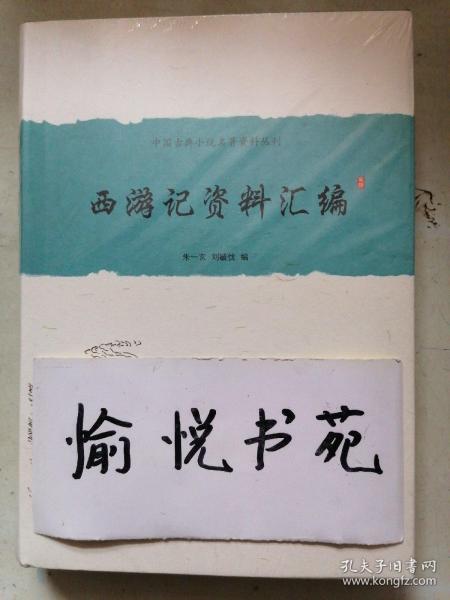 中国古典小说名著资料丛刊
西游记资料汇编
朱一玄 刘毓忱 编
愉悦书苑
孔夫子旧书网
www.kongfz.com